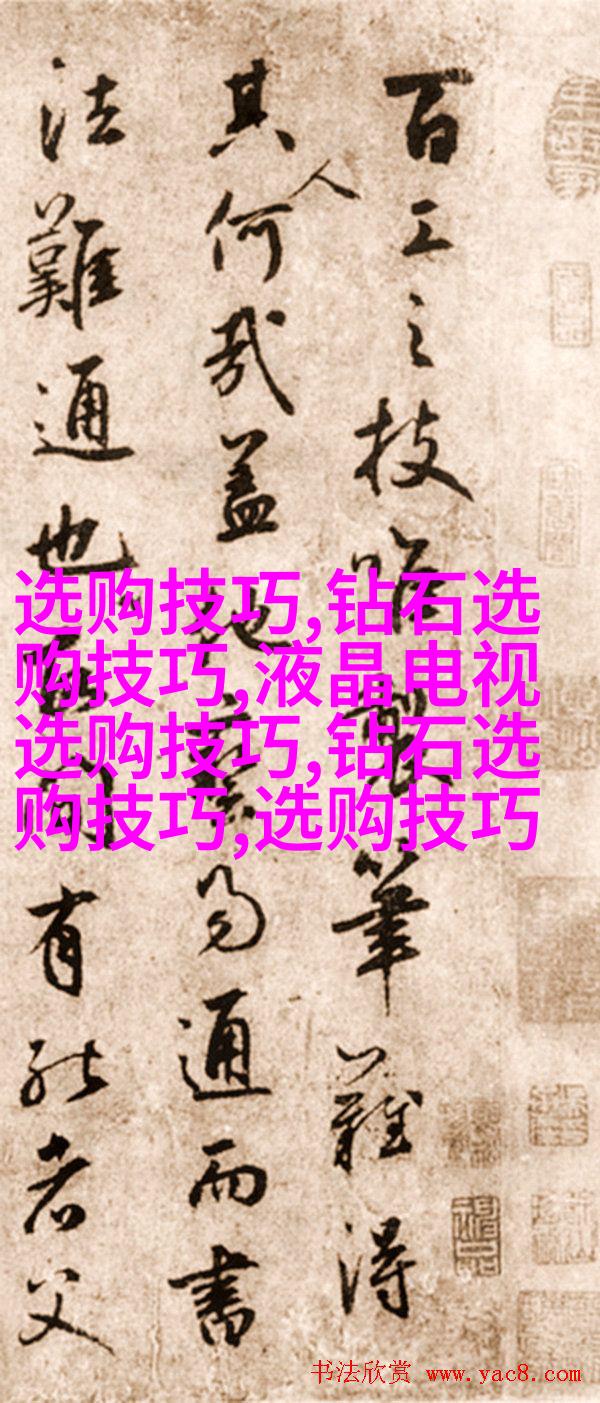 百工之技唯製筆難得
其人何哉盖易通而書
法難通也有能者父
选购技巧,钻石选
购技巧,液晶电视
选购技巧,钻石选
购技巧,选购技巧
书法欣赏 www.yac8.com